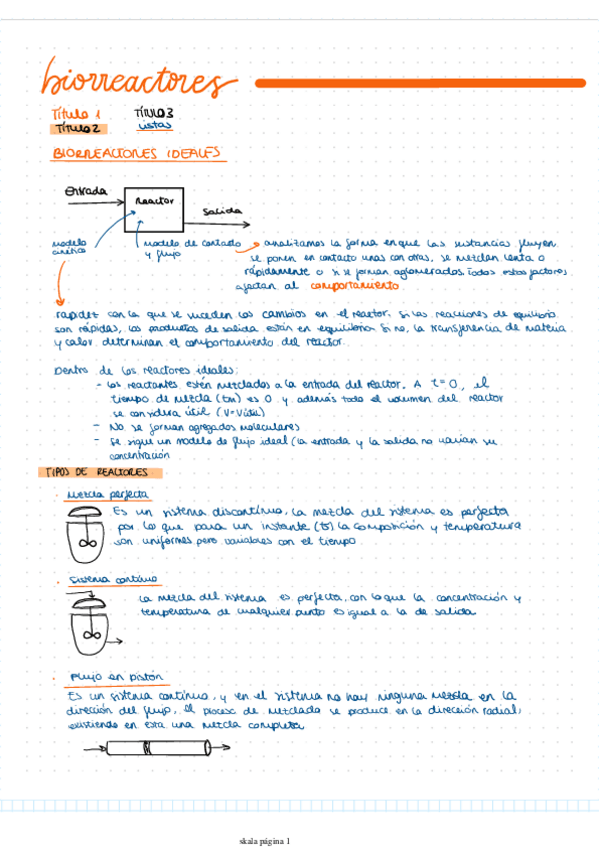 biorreactores
Título 1 TÍTULO 3
TÍTULO 2 Listas
BIORREACTORES IDEALES
Entrada
Reactor
Salida
modelo cinético
modelo de contacto y flujo
analizamos la forma en que las sustancias fluyen,
se ponen en contacto unas con otras, se mezclan lenta o
rápidamente o si se forman aglomerados. Todos estos factores
afectan al comportamiento.
rapidez con la que se suceden los cambios en el reactor. Si las reacciones de equilibrio
son rápidas, los productos de salida están en equilibrio. Si no, la transferencia de materia
y calor determinan el comportamiento del reactor.
Dentro de los reactores ideales:
- Los reactantes estén mezclados a la entrada del reactor. A t=0, el
tiempo de mezcla (tm) es 0 y además todo el volumen del reactor
se considera útil (V=Vútil)
- No se forman agregados moleculares
- Se sigue un modelo de flujo ideal (la entrada y la salida no varían su
concentración
TIPOS DE REACTORES
· Mezcla perfecta
Es un sistema discontinuo, la mezcla del sistema es perfecta
por lo que para un instante (t) la composición y temperatura
son uniformes pero variables con el tiempo.
· Sistema continuo
La mezcla del sistema es perfecta, con lo que la concentración y
temperatura de cualquier punto es igual a la de salida
· Flujo en pistón
Es un sistema continuo, y en el sistema no hay ninguna mezcla en la
dirección del flujo, el proceso de mezclado se produce en la dirección radial,
existiendo en esta una mezcla completa
skala página 1